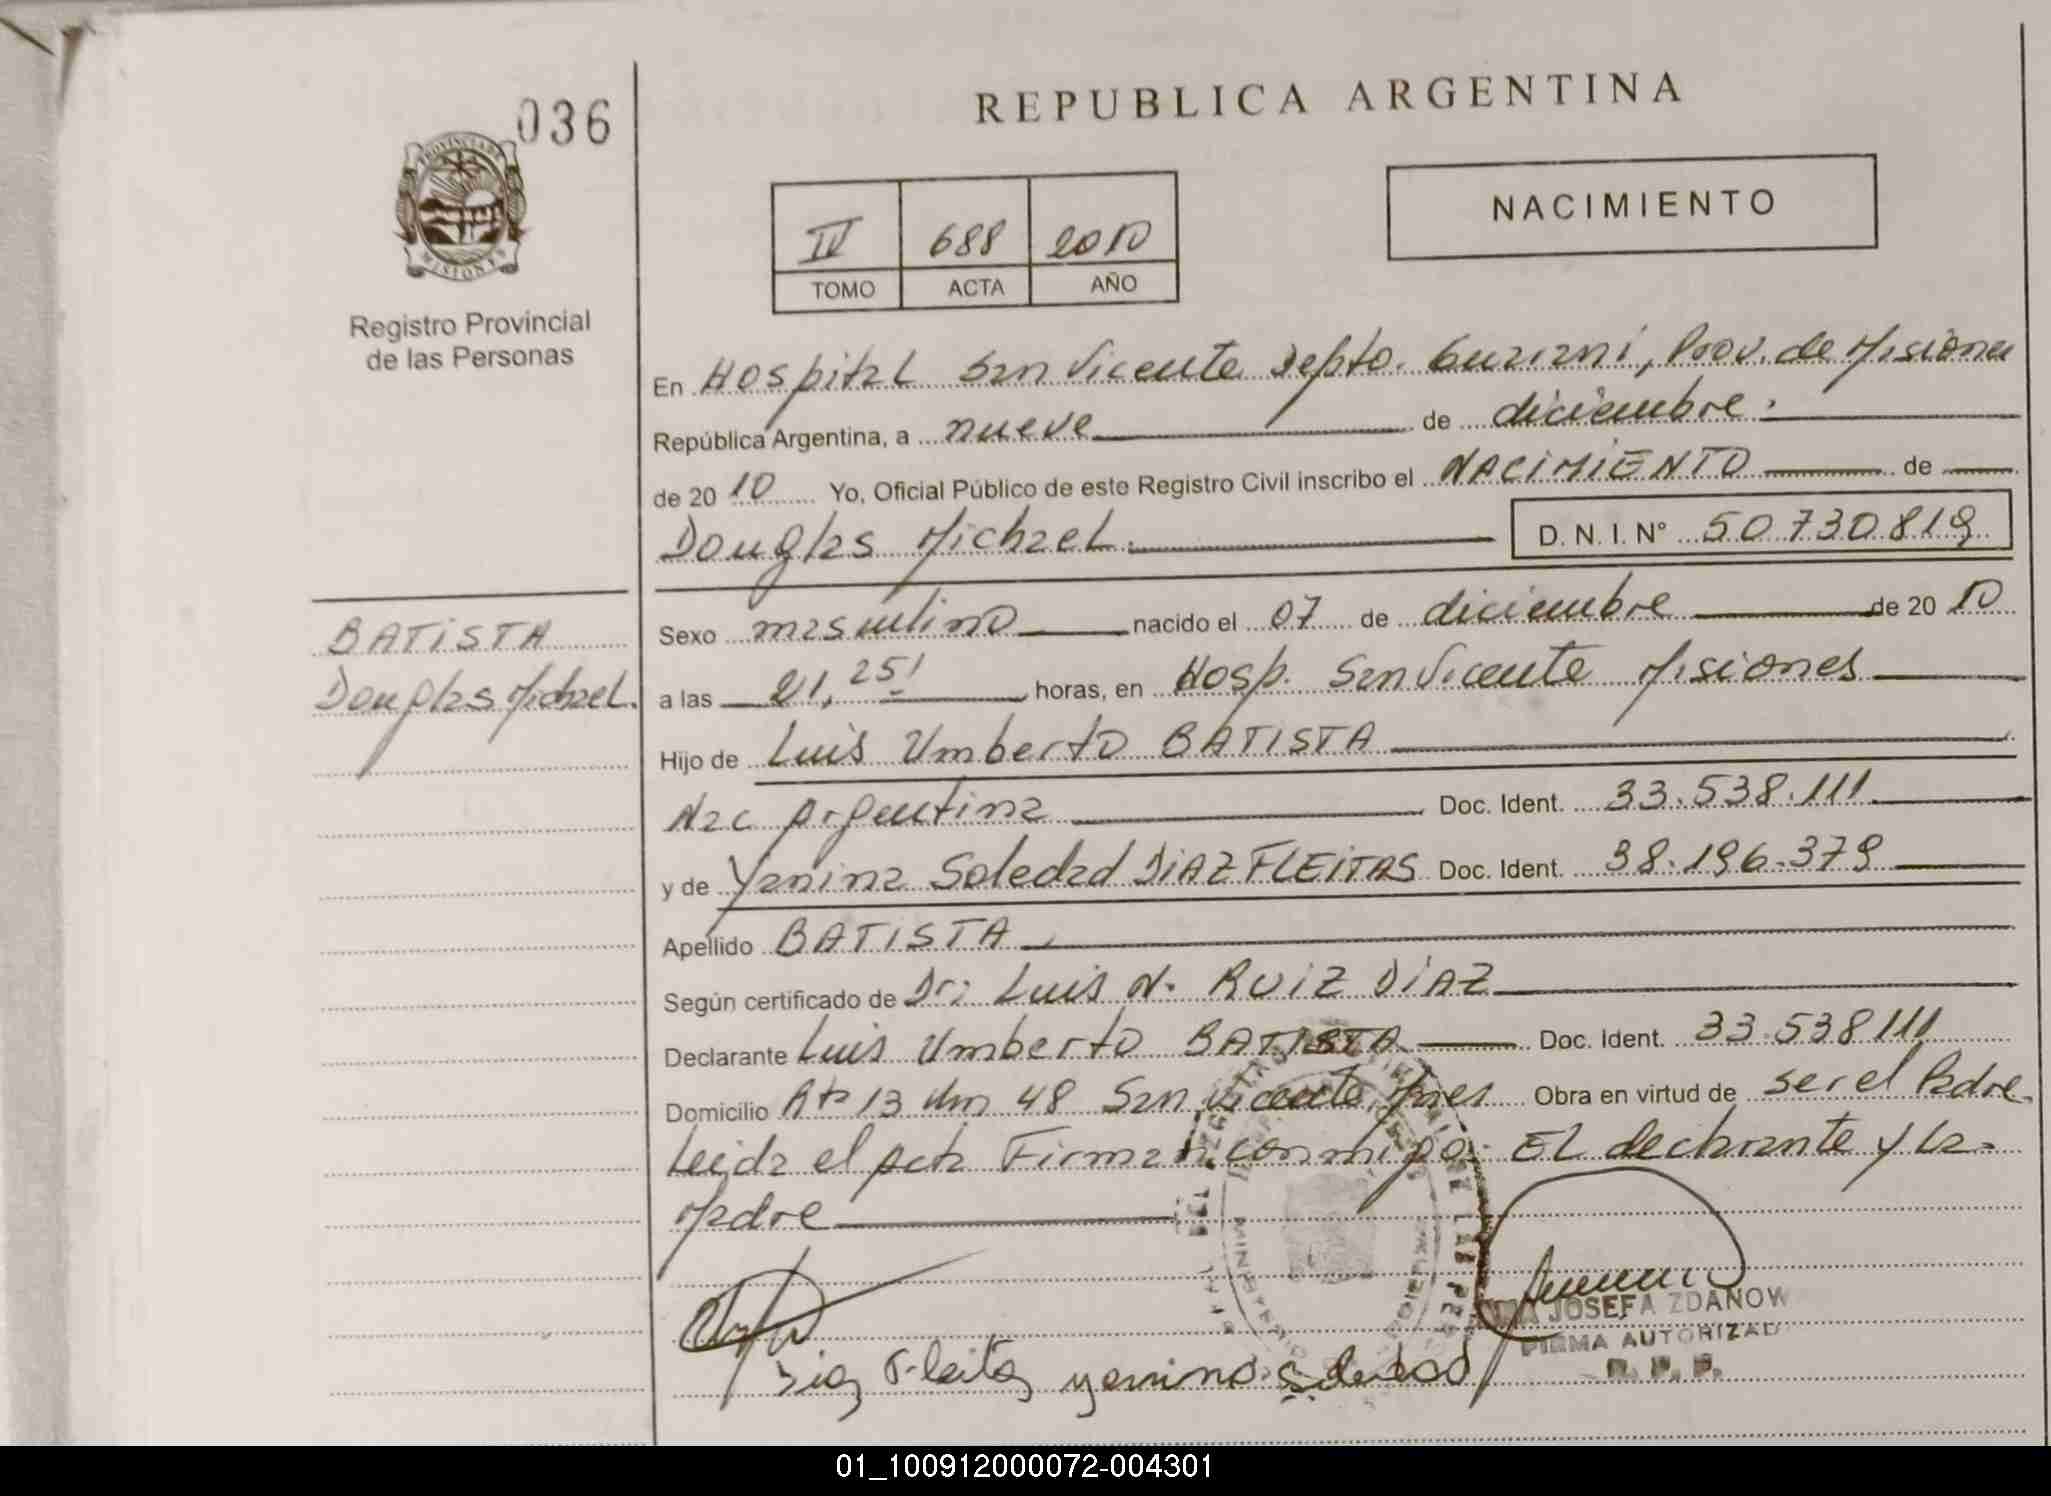 036
REPUBLICA ARGENTINA
PROVINCIA DE
MISIONES
Registro Provincial
de las Personas
IV 688 2010
TOMO ACTA AÑO
NACIMIENTO
En Hospital San Vicente Depto. Guarani, Prov. de Misiones
República Argentina, a nueve de diciembre.
de 20 10 Yo, Oficial Público de este Registro Civil inscribo el NACIMIENTO de
Douglas Michael. D. N. I. N° 50.730.819
BATISTA
Douglas Michael.
Sexo masculino nacido el 07 de diciembre de 20 10
a las 21,25' horas, en Hosp. San Vicente Misiones
Hijo de Luis Umberto BATISTA
Nac Argentina Doc. Ident. 33.538.111
y de Yanina Soledad DIAZ FLEITAS Doc. Ident. 38.196.379
Apellido BATISTA
Según certificado de Dr: Luis N. RUIZ DIAZ
Declarante Luis Umberto BATISTA Doc. Ident. 33.538.111
Domicilio Rta 13 Km 48 San Vicente, Mnes Obra en virtud de ser el Padre.
Leida el Acta Firman conmigo: El declarante y la
Madre
JOSEFA ZDANOW
FIRMA AUTORIZAD
R. P. P.
Diaz Fleitas yanina Soledad
01_100912000072-004301